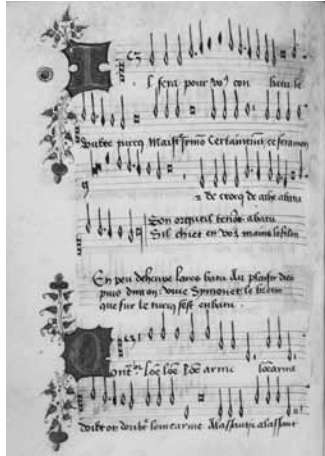 Il sera pour vo9 con batu le
doubte turcq Maistre Certainemi ce sera mon
a de crocq de ache abatu
Son orgueil tenos abatu
S'il chiet en vos mains le felon
En peu deheure lares batu Au plaisir dieu
puis dira on : vive Symonet le breton
que sur le turcq s'est enbatu .
lome lome lome arme lomearme
doibt on doubter lome arme A lassault a lassault